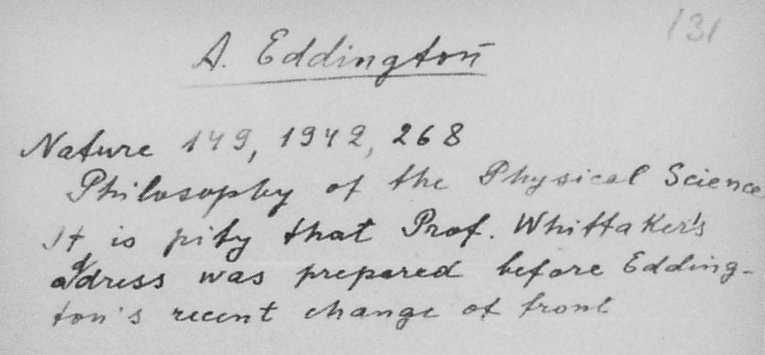 131
A. Eddington
Nature 149, 1942, 268
Philosophy of the Physical Science
It is pity that Prof. Whittaker's
address was prepared before Edding-
ton's recent change of front